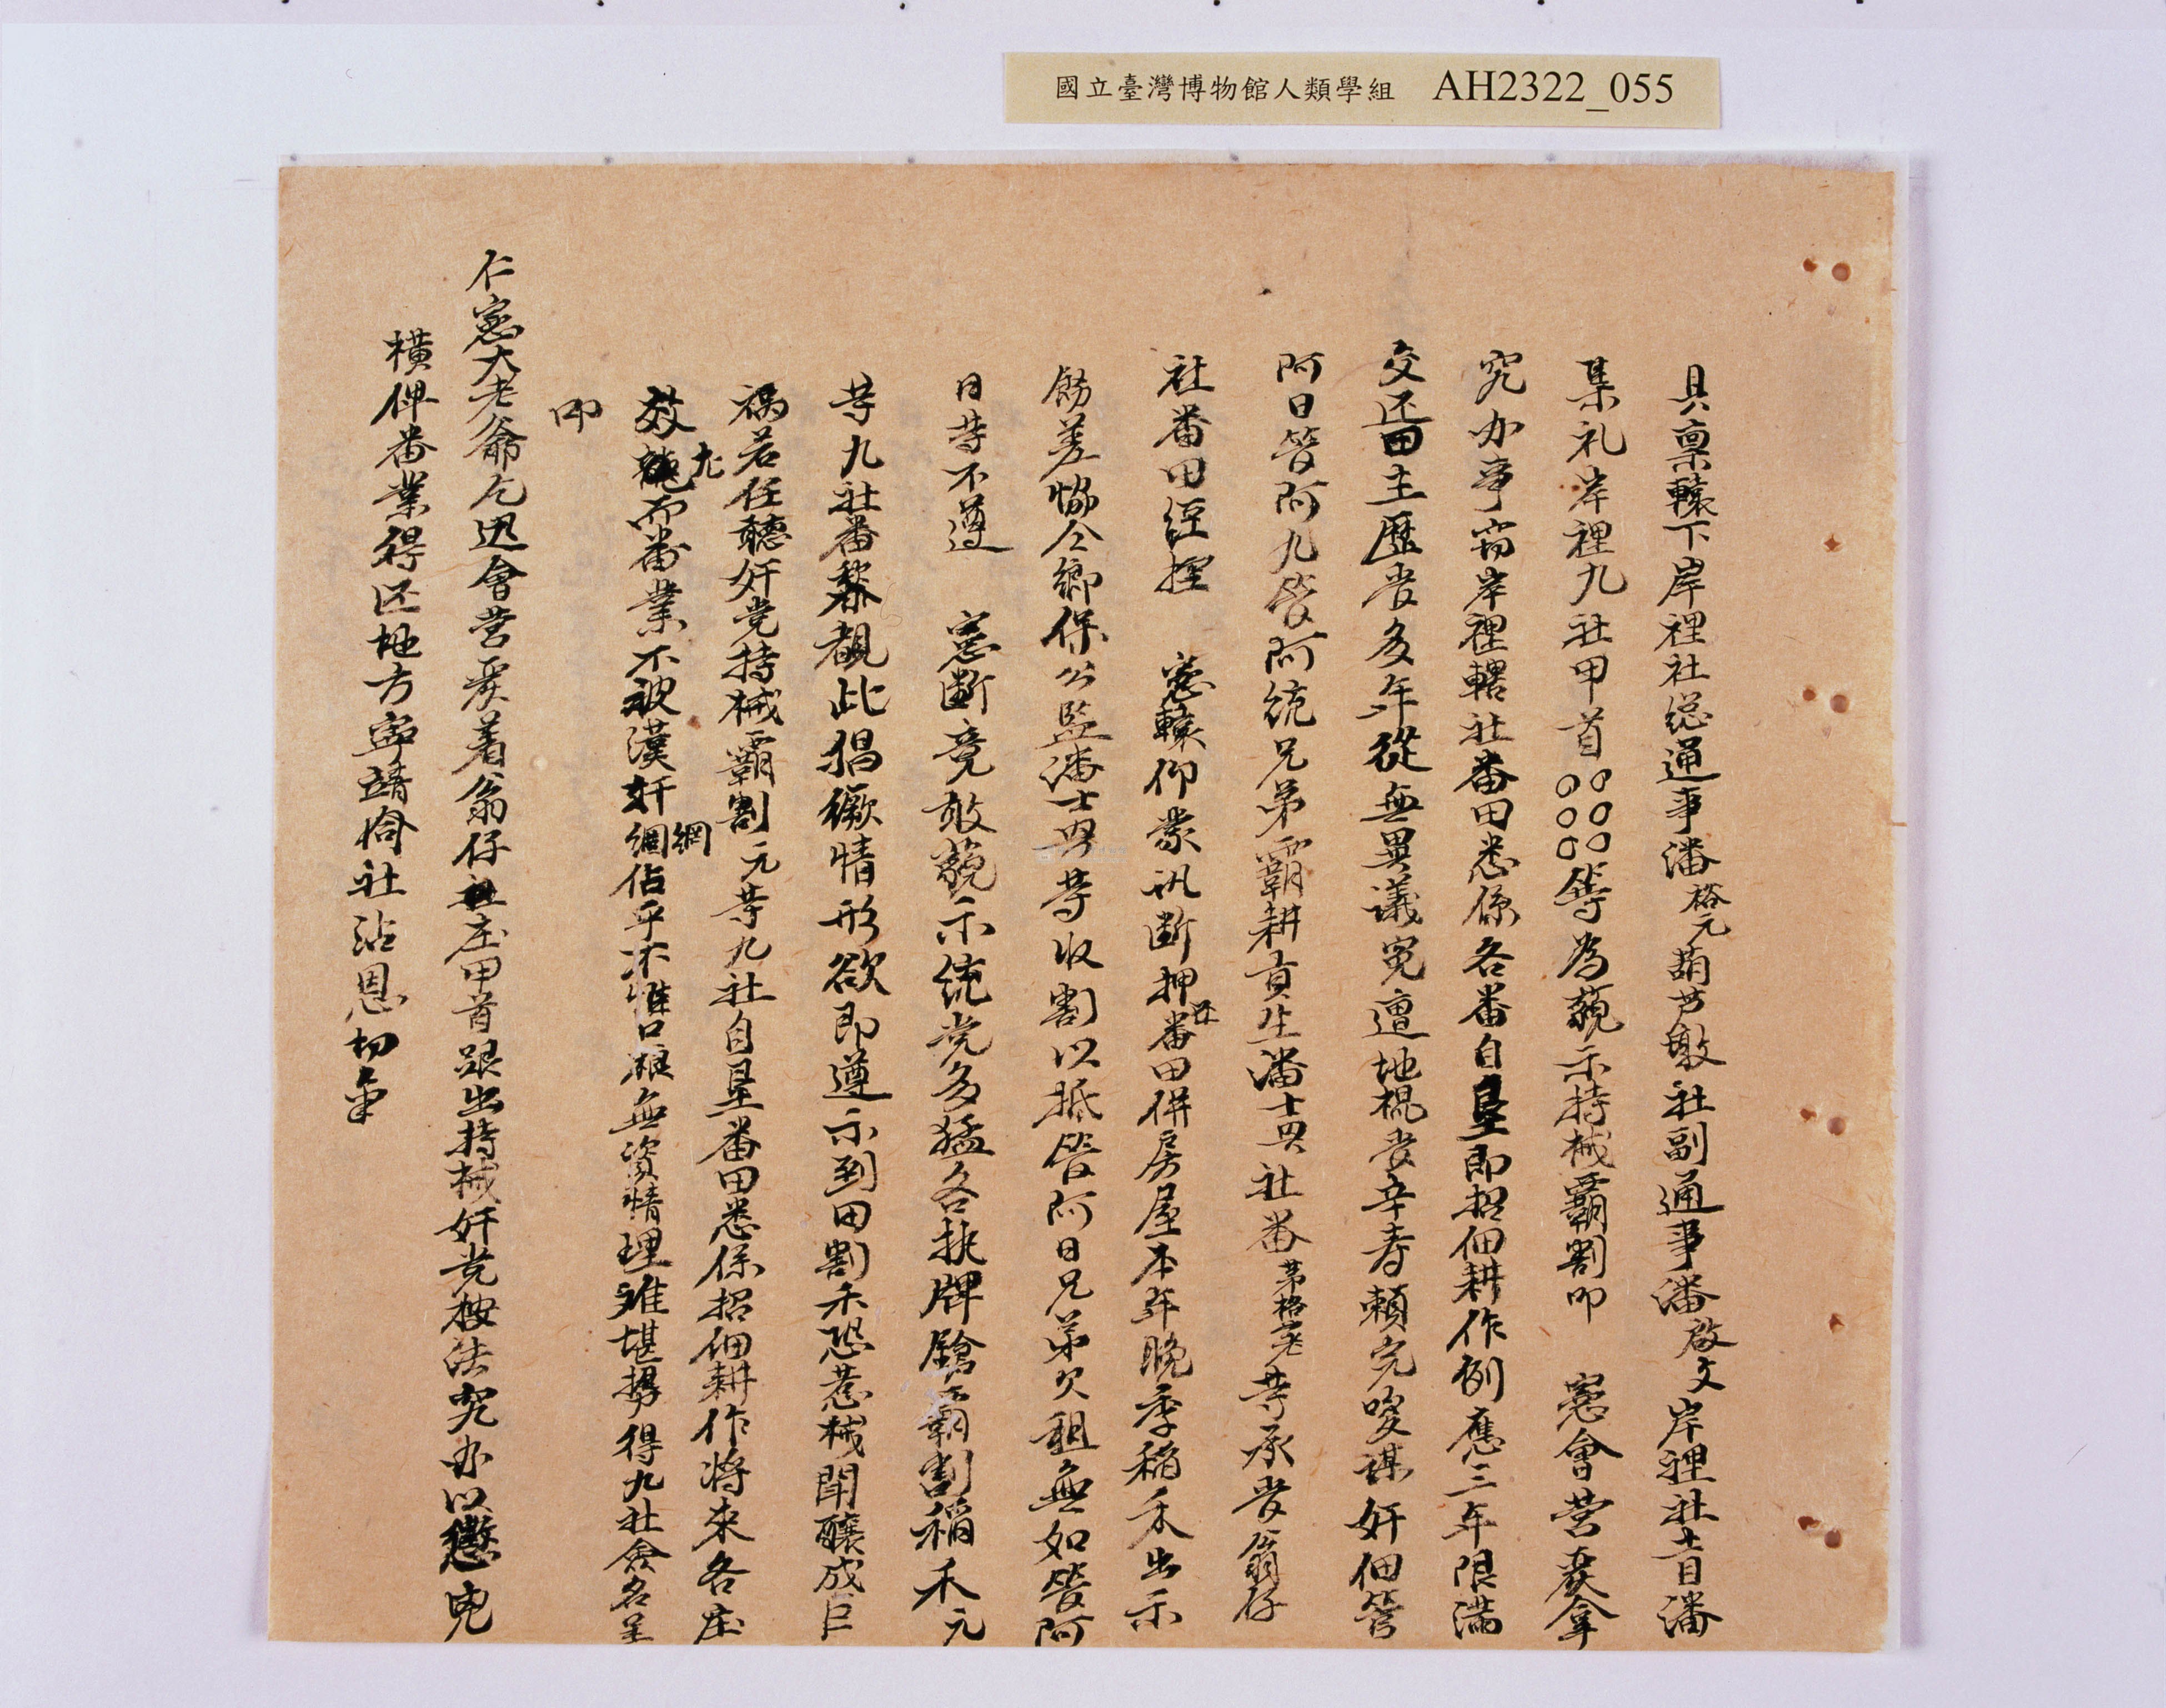 國立臺灣博物館人類學組 AH2322_055
具稟轅下岸裡社總通事潘裕元葫芦墩社副通事潘啟文岸裡社土目潘
集礼岸裡九社甲首〇〇〇〇〇〇等為藐示持械霸割叩 憲會营嚴拿
究办事窃岸裡轄社番田悉係各番自垦即招佃耕作例應三年限滿
交还田主歷肯多年從無異議冤遭地棍 辛寿賴完唆謀奸佃管
阿日管阿九管阿統兄弟霸耕貢生潘士興社番茅格老等承 翁仔
社番田經控 憲轅仰蒙訊断押 社番田併房屋本年晚季稻禾出示
飭差協仝鄉保公監潘士興等收割以抵管阿日兄弟欠租無如管阿
日等不遵 憲断竟敢藐示統党多猛各执牌鎗霸割稻禾元
等九社番黎覩此猖獗情形欲即遵示到田割禾恐惹械鬧釀成巨
禍若任聽奸党持械霸割元等九社自垦番田悉係招佃耕作將來各庄
效尤而番業不被漢奸網佔乎不惟口粮無資情理难堪 得九社僉名呈
叩
仁憲大老爺乞迅會营嚴着翁仔社庄甲首跟出持械奸党按法究办以懲兇
橫俾番業得还地方寧靖闔社沾恩切稟